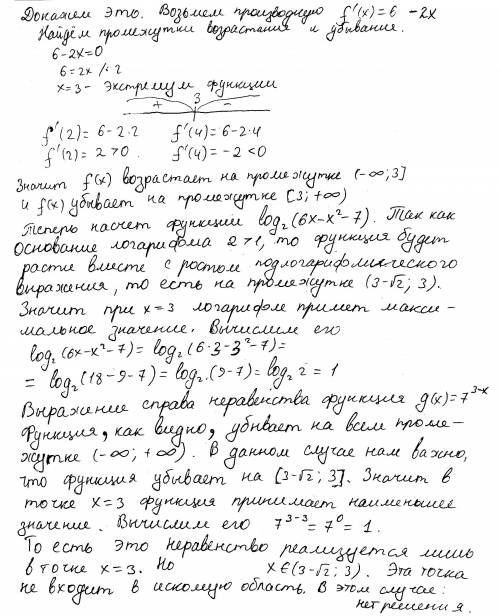 Докажем это. Возьмем производную f'(x)=6 -2x
Найдём промежутки возрастания и убывание.
6-2x=0
6=2x /:2
x=3- Экстремум функции
+ 3 -
f'(2)=6-2·2 f'(4)=6-2·4
f'(2)=2>0 f'(4)=-2<0
Значит f(x) возрастает на промежутке (-∞;3]
и f(x) убывает на промежутке [3;+∞)
Теперь насчет функции log₂(6x-x²-7). Так как
основание логарифма 2>1, то функция будет
расти вместе с ростом подлогарифмического
выражения, то есть на промежутке (3-√2; 3).
Значит при x=3 логарифм примет макси-
мальное значение. Вычислим его
log₂(6x-x²-7)=log₂(6·3-3²-7)=
=log₂(18-9-7)=log₂(9-7)=log₂2=1
Выражение справа неравенства функция g(x)=7³⁻ˣ
Функция, как видно, убывает на всем проме-
жутке (-∞;+∞). В данном случае нам важно,
что функция убывает на [3-√2; 3]. Значит в
точке x=3 функция принимает наименьшее
значение. Вычислим его 7³⁻³=7⁰=1.
То есть это неравенство реализуется лишь
в точке x=3. Но x∈(3-√2; 3). Эта точка
не входит в искомую область. В этом случае:
нет решения.